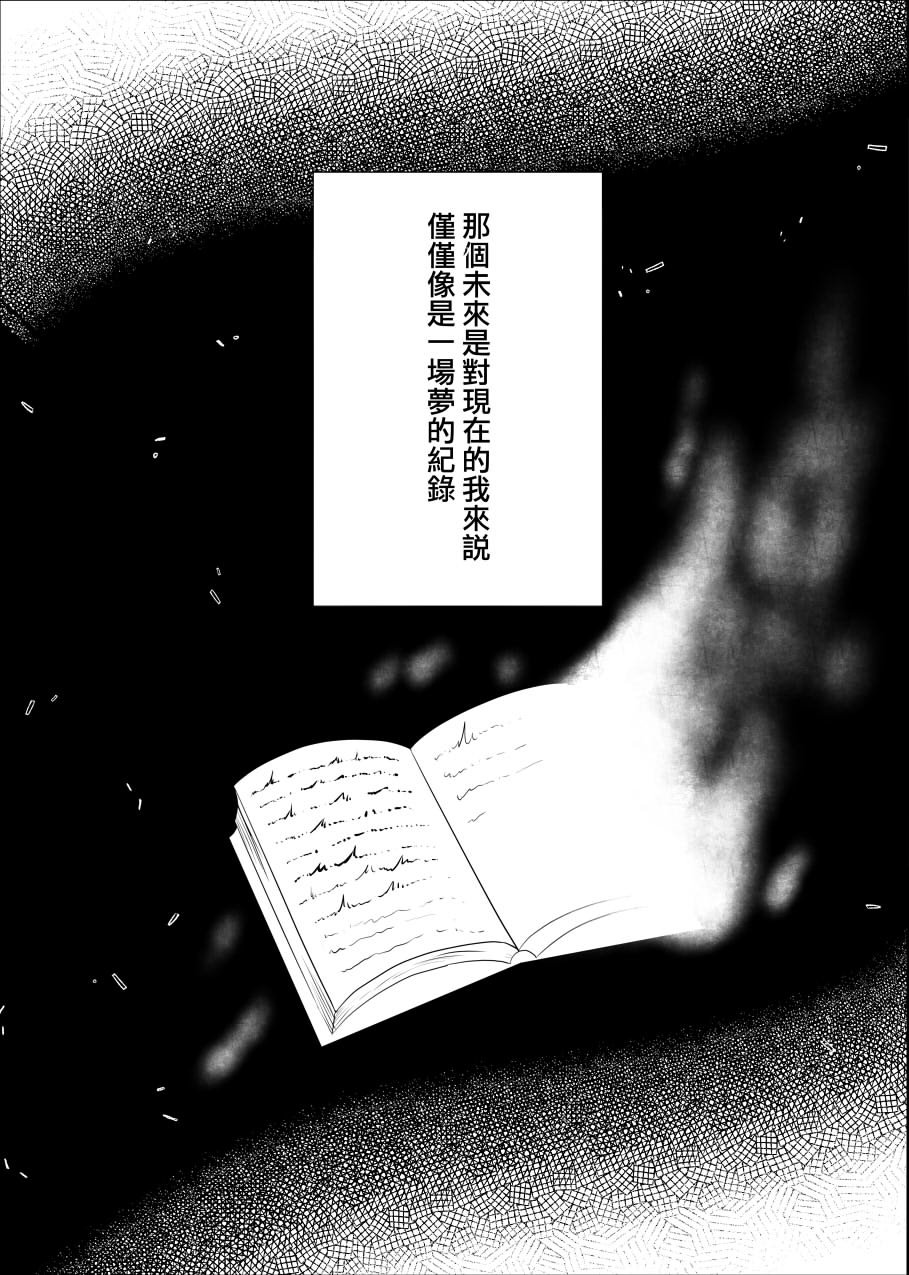 那個未來是對現在的我來説
僅僅像是一場夢的紀錄